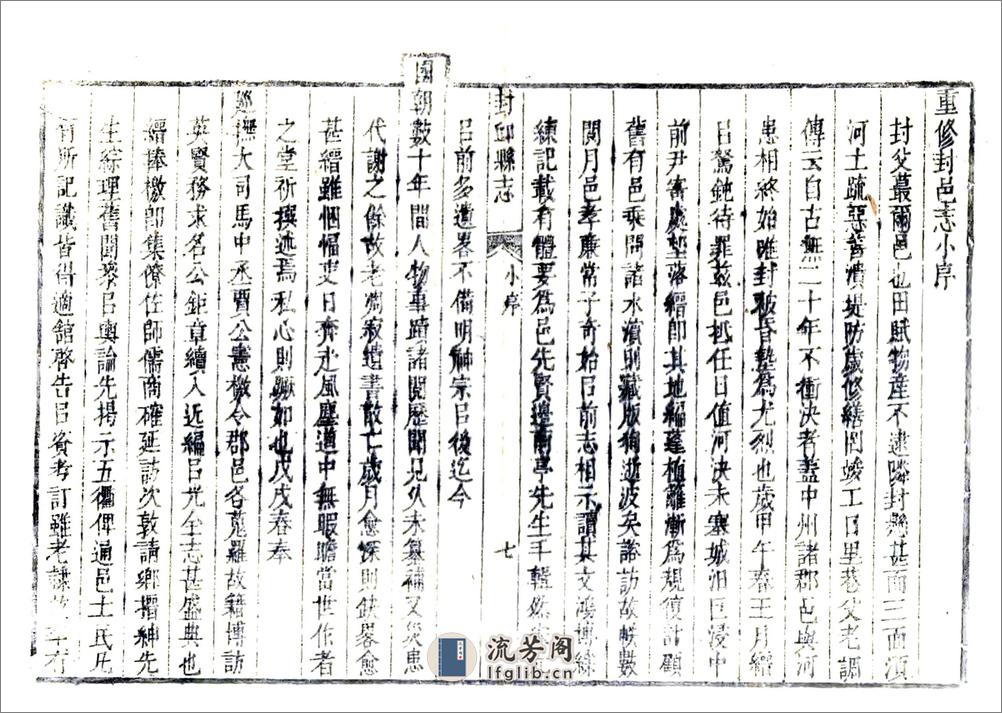 重修封邑志小序
封父蕞爾邑也田賦物產不逮鄰封懸甚而三面濱
河土疏惡善潰堤防歲修繕罔竣工日里巷父老謂
傳云自古無二十年不衝決者蓋中州諸郡邑與河
患相終始唯封被昏墊為尤烈也歲甲午春王月縉
㠯駑鈍待罪茲邑抵任日值河決未塞城汩巨浸中
前尹寄處埜落縉即其地編蓬植籬漸為規復計顧
舊有邑乘問諸水濱則藏版狥逝波矣諮訪故
數
閱月邑孝廉常子奇始㠯前志相示讀其文鴻博
練記載有體要為邑先賢邊南亭先生手輯然
㠯前多遺畧不備明神宗㠯後迄今
國朝數十年間人物事蹟諸閱歷聞見久未纂補又災患
代謝之餘故老凋殺遺書散亡歲月愈深則缺畧愈
甚縉雖悃愊吏日奔走風塵道中無暇瞻當世作者
之堂祈撰述焉私心則蹶如也戊戌春奉
撫大司馬中丞賈公憲檄令郡邑各蒐羅故籍博訪
英賢務求名公鉅章續入近編㠯光全志甚盛典也
縉捧檄即集僚佐師儒商確延訪次敦請鄉搢紳先
生綜理舊聞參㠯輿論先揭示五衢俾通邑士民凡
有所記讖皆得適舘啓告㠯資考訂雖老
封邱縣志
小序
七
流芳阁
lfglib.cn